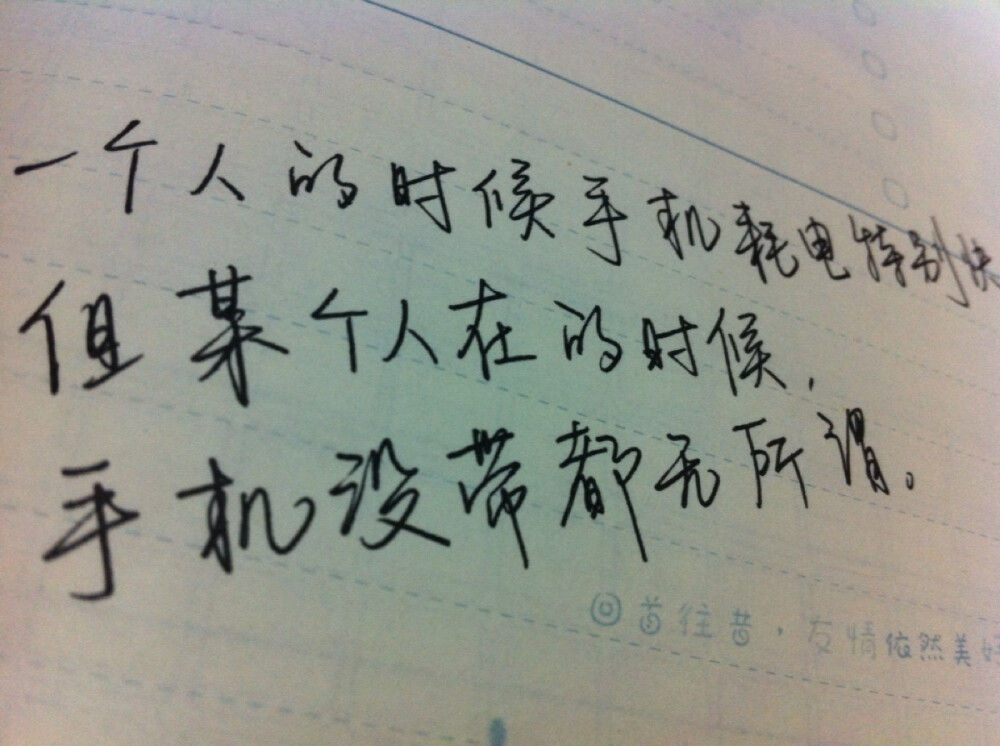 一个人的时候手机耗电特别快
但某个人在的时候,
手机没带都无所谓。
回首往昔,友情依然美好